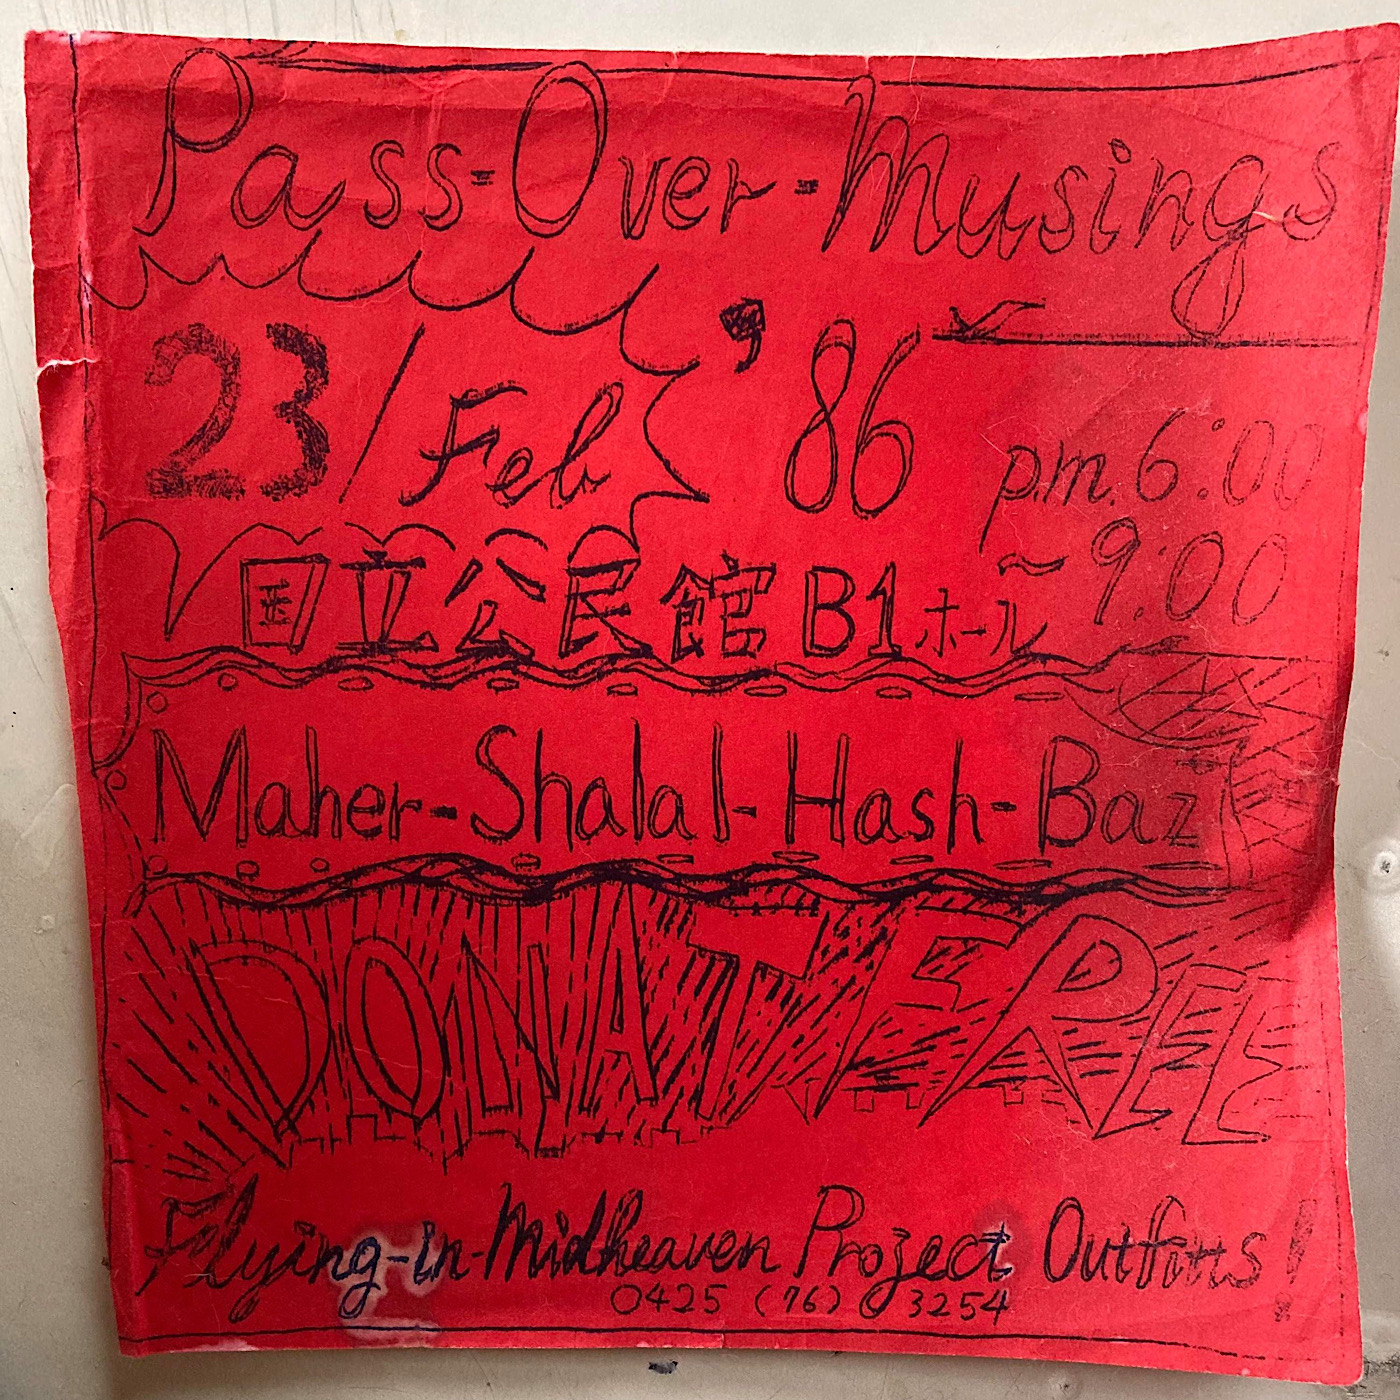 Pass-Over-Musings
23/Feb '86 p.m. 6:00
~9:00
国立公民館 B1ホール
Maher-Shalal-Hash-Baz
DONAT FREE
Flying-In-Midheaven Project Outfitts!
0425 (76) 3254